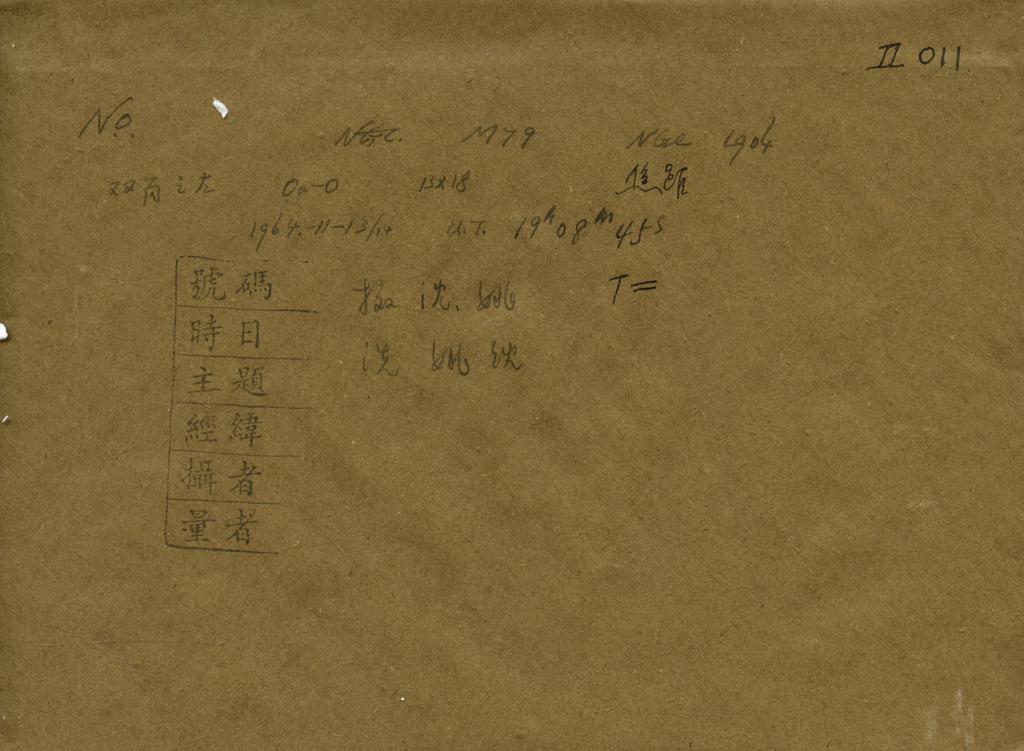 II 011
N.O. NGC. M79 NGC 1904
双筒之左 Oa-O 13x18 焦距
1964.-11-13/14 U.T. 19h08m45s
摄 沈、姚 T=
洗 姚 沈
號碼
時日
主題
經緯
攝者
量者